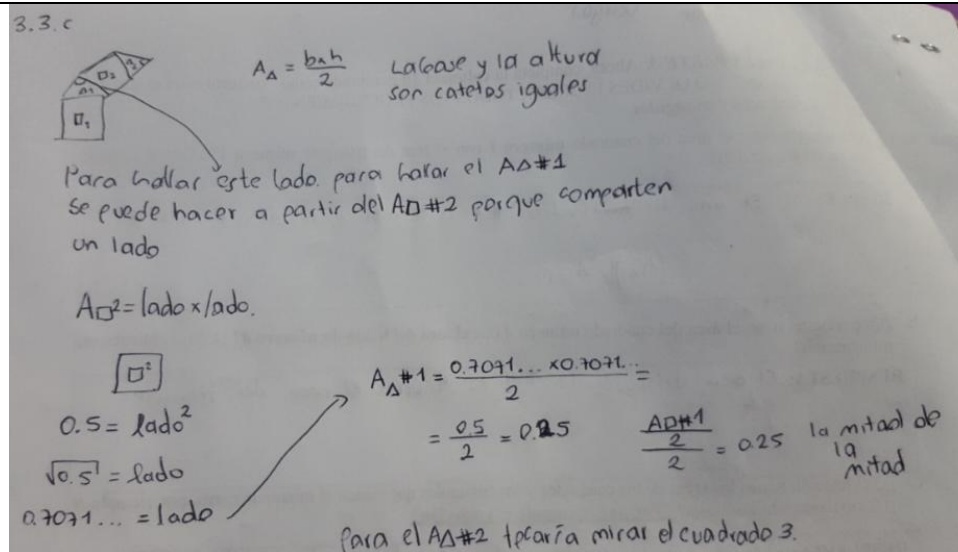 3.3.c
□₂
△₁
□₁
A△ = bxh/2 La base y la altura
son catetos iguales
Para hallar este lado. para halar el A△#1
se puede hacer a partir del A□#2 porque comparten
un lado
A□² = lado x lado.
□²
0.5 = lado²
√0.5 = lado
0.7071... = lado
A△#1 = 0.7071... x0.7071.../2 =
= 0.5/2 = 0.25
A□#1/2/2 = 0.25 la mitad de
la
mitad
Para el A△#2 tocaría mirar el cuadrado 3.